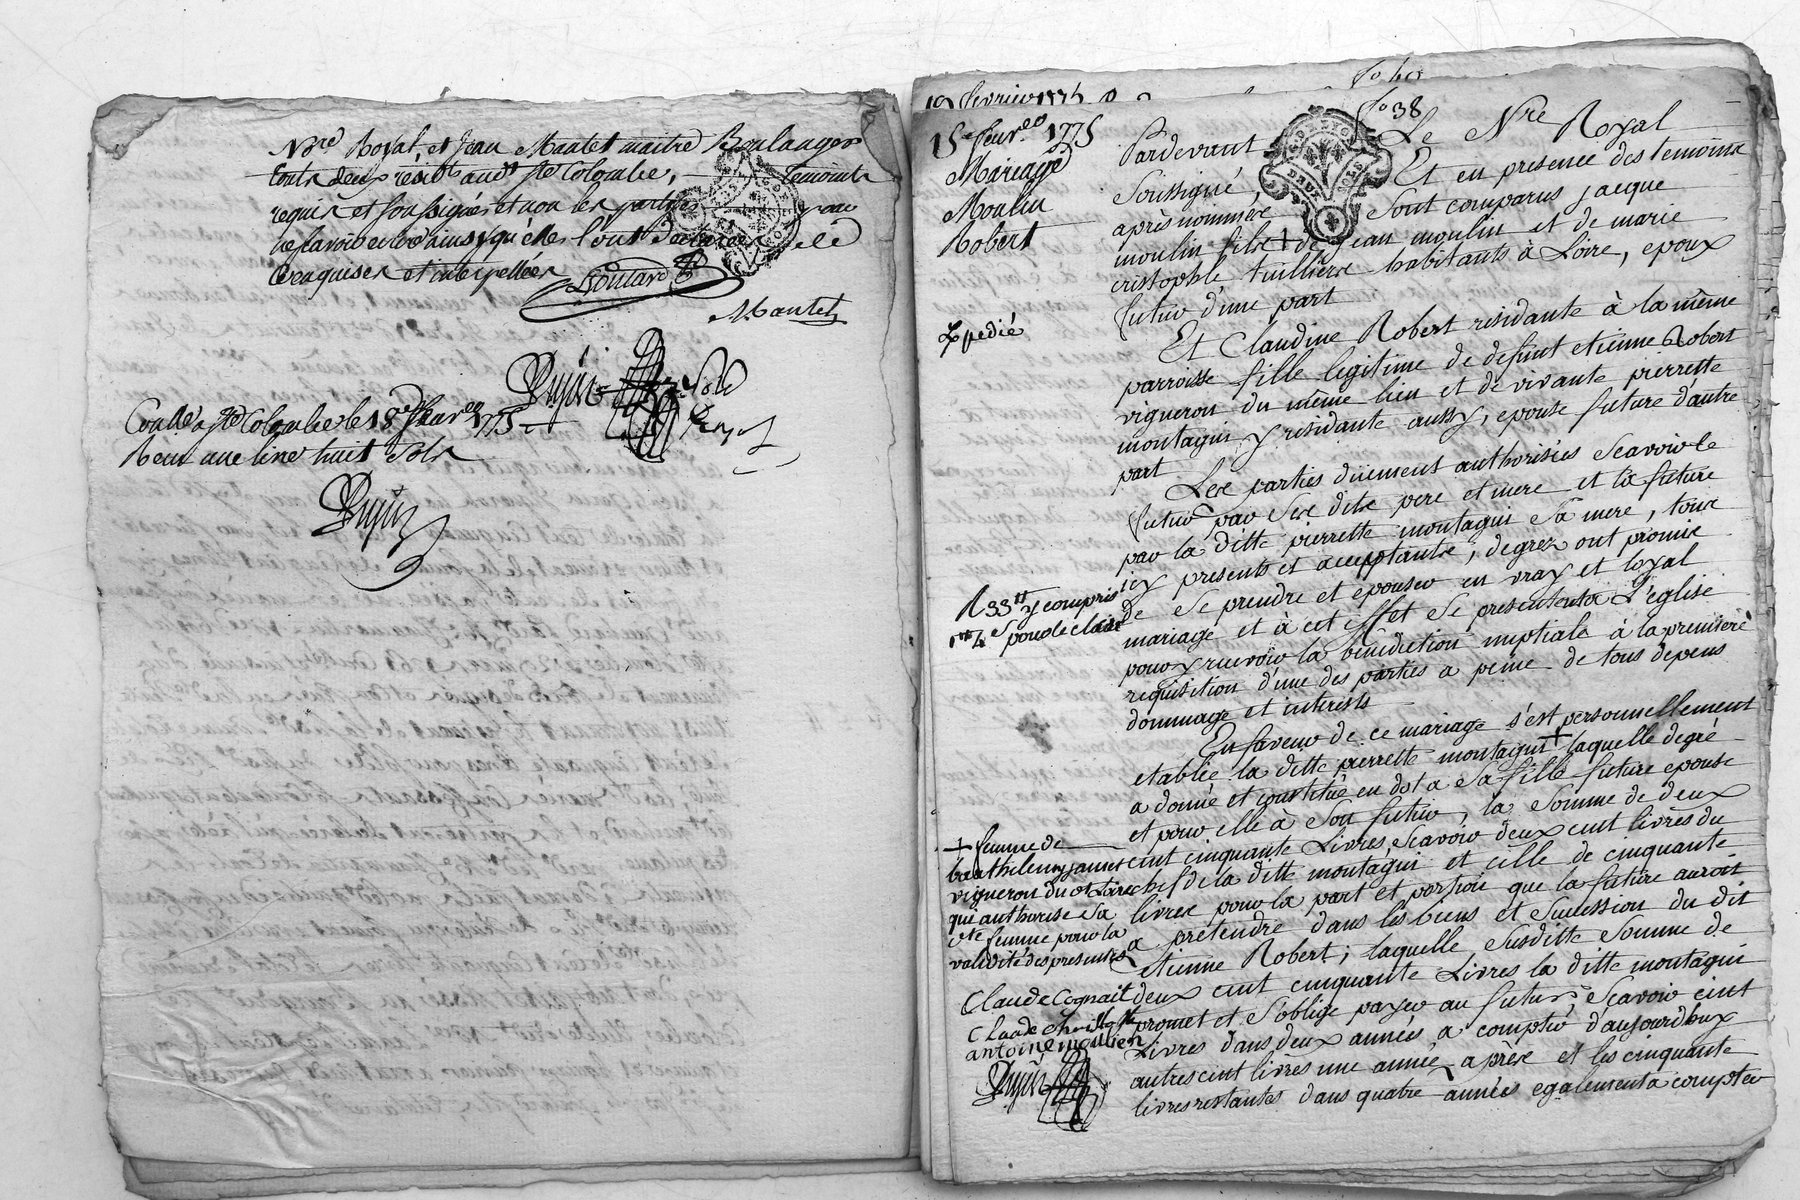 Nre Royal, et Jean Mantel maitre Boulanger
touts deux résidts audt Ste Colombe, temoints
requis et soussignés et non les parties pour
ne savoir ecrire ainsy qu'elles l'ont declarées de ce
Enquises et interpellées
Boutard
Mantel
Dujin
Conlle a Ste Colombe le 18e fevreo 1775
Receu une livre huit sols
Dujin
19 fevrier 1775
fo 40
fo 38
15e fevreo 1775
Mariage
Moulin
Robert
Expedié
Pardevant Le Nre Royal
Soussigné, Et en presence des temoins
après nommés Sont comparus jacque
moulin fils + de jean moulin et de marie
cristophle tuilliers habitants à Loire, epoux
futur d'une part
Et Claudine Robert residante à la même
parroisse fille legitime de defunt etienne Robert
vigneron du même lieu et de vivante pierrette
montagni y residante aussy, epouse future d'autre
part
Les parties düement authorisées Scavoir le
futur par Ses dits pere et mere et la future
par la ditte pierrette montagni Sa mere, tous
icy presents et acceptants, de grez ont promis
de Se prendre et epouser en vray et loyal
mariage et à cet effet Se presenter à L'eglise
pour y recevoir la bénédiction nuptiale à la premiere
requisition d'une des parties a peine de tous depens
dommage et interests
En faveur de ce mariage s'est personnellement
etablie la ditte pierrette montagni + laquelle de gré
a donné et constitué en dot a Sa fille future epouse
et pour elle à Son futur, la Somme de deux
cent cinquante Livres, Scavoir deux cent livres du
chef de la ditte montagni et celle de cinquante
livres pour la part et portion que la future auroit
a prétendre dans les biens et Succession du dit
etienne Robert; laquelle Susditte Somme de
deux cent cinquante Livres la ditte montagni
promet et S'oblige payer au futur, Scavoir cent
Livres dans deux années a compter d'aujourd'huy
autres cent livres une année après et les cinquante
livres restantes dans quatre années egalement a compter
R 33tt y compris
pour le clair
+ femme de
barthelemy janet
vigneron du dt Loire
qui authorise Sa
dte femme pour la
validité des presentes
Claude Cognait
Claude
antoine moullien
Dujin